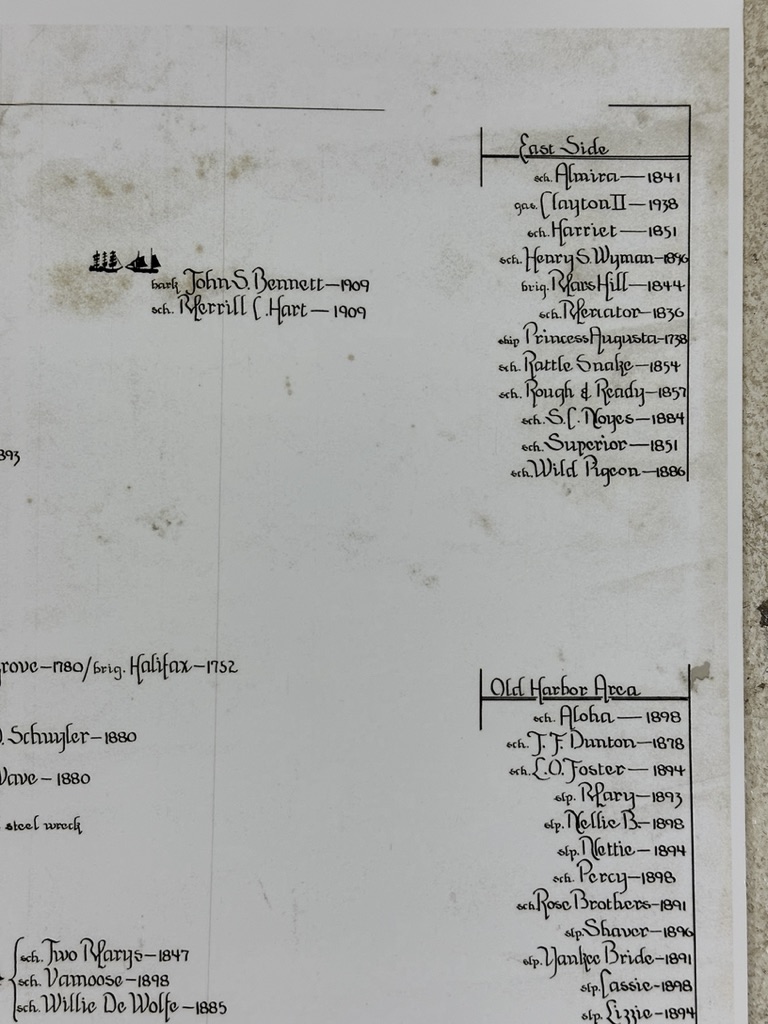 East Side
sch. Almira — 1841
gas. Clayton II — 1938
sch. Harriet — 1851
sch. Henry S. Wyman — 1896
brig. Mars Hill — 1844
sch. Mercator — 1836
ship Princess Augusta — 1738
sch. Rattle Snake — 1854
sch. Rough & Ready — 1857
sch. S.C. Noyes — 1884
sch. Superior — 1851
sch. Wild Pigeon — 1886
bark John S. Bennett — 1909
sch. Merrill C. Hart — 1909
893
rove — 1780 / brig. Halifax — 1752
. Schuyler — 1880
Wave — 1880
steel wreck
sch. Two Marys — 1847
sch. Vamoose — 1898
sch. Willie De Wolfe — 1885
Old Harbor Area
sch. Aloha — 1898
sch. T. F. Dunton — 1878
sch. L.O. Foster — 1894
slp. Mary — 1893
slp. Nellie B. — 1898
slp. Nettie — 1894
sch. Percy — 1898
sch. Rose Brothers — 1891
slp. Shaver — 1896
slp. Yankee Bride — 1891
slp. Cassie — 1898
slp. Lizzie — 1894